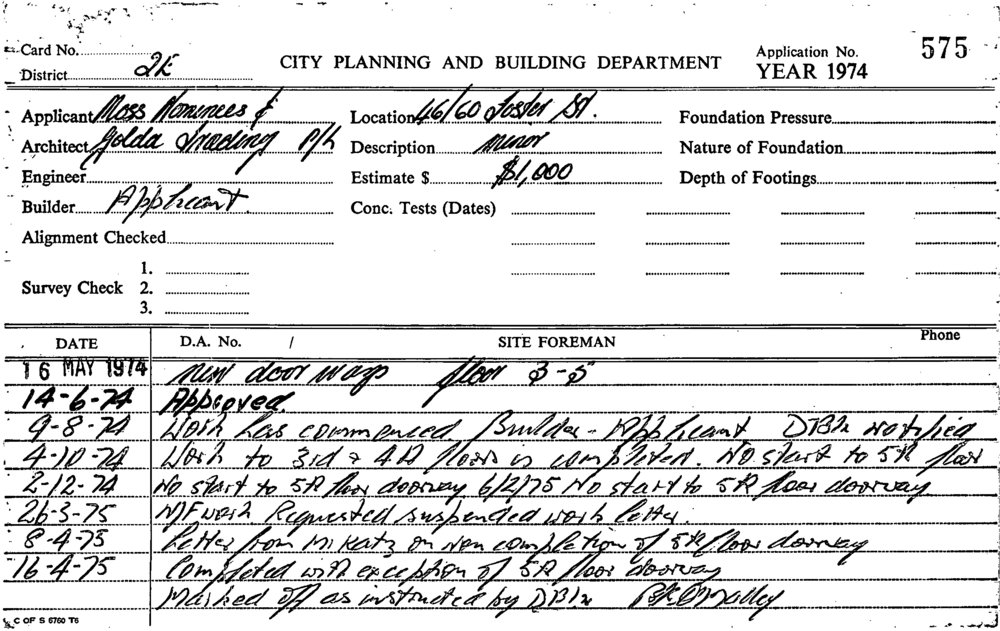 Card No.
District 2E
CITY PLANNING AND BUILDING DEPARTMENT
Application No. 575
YEAR 1974
Applicant Moss Nominees &
Architect Golda Trading P/L
Engineer
Builder Applicant.
Alignment Checked
Survey Check 1.
2.
3.
Location 46/60 Foster St.
Description Minor
Estimate $ $1,000
Conc. Tests (Dates)
Foundation Pressure
Nature of Foundation
Depth of Footings
DATE D.A. No. / SITE FOREMAN Phone
16 MAY 1974 new door ways floor 3-5
14-6-74 Approved.
9-8-74 Work has commenced Builder - Applicant notified
4-10-74 Work to 3rd & 4th floors is completed. No start to 5th floor
2-12-74 No start to 5th floor doorway 6/2/75 No start to 5th floor doorway
26-3-75 N/F work Requested suspended work letter.
8-4-75 Letter from Mr Katz on non completion of 5th floor doorway
16-4-75 Completed with exception of 5th floor doorway
Marked off as instructed by
C OF S 6760 T6